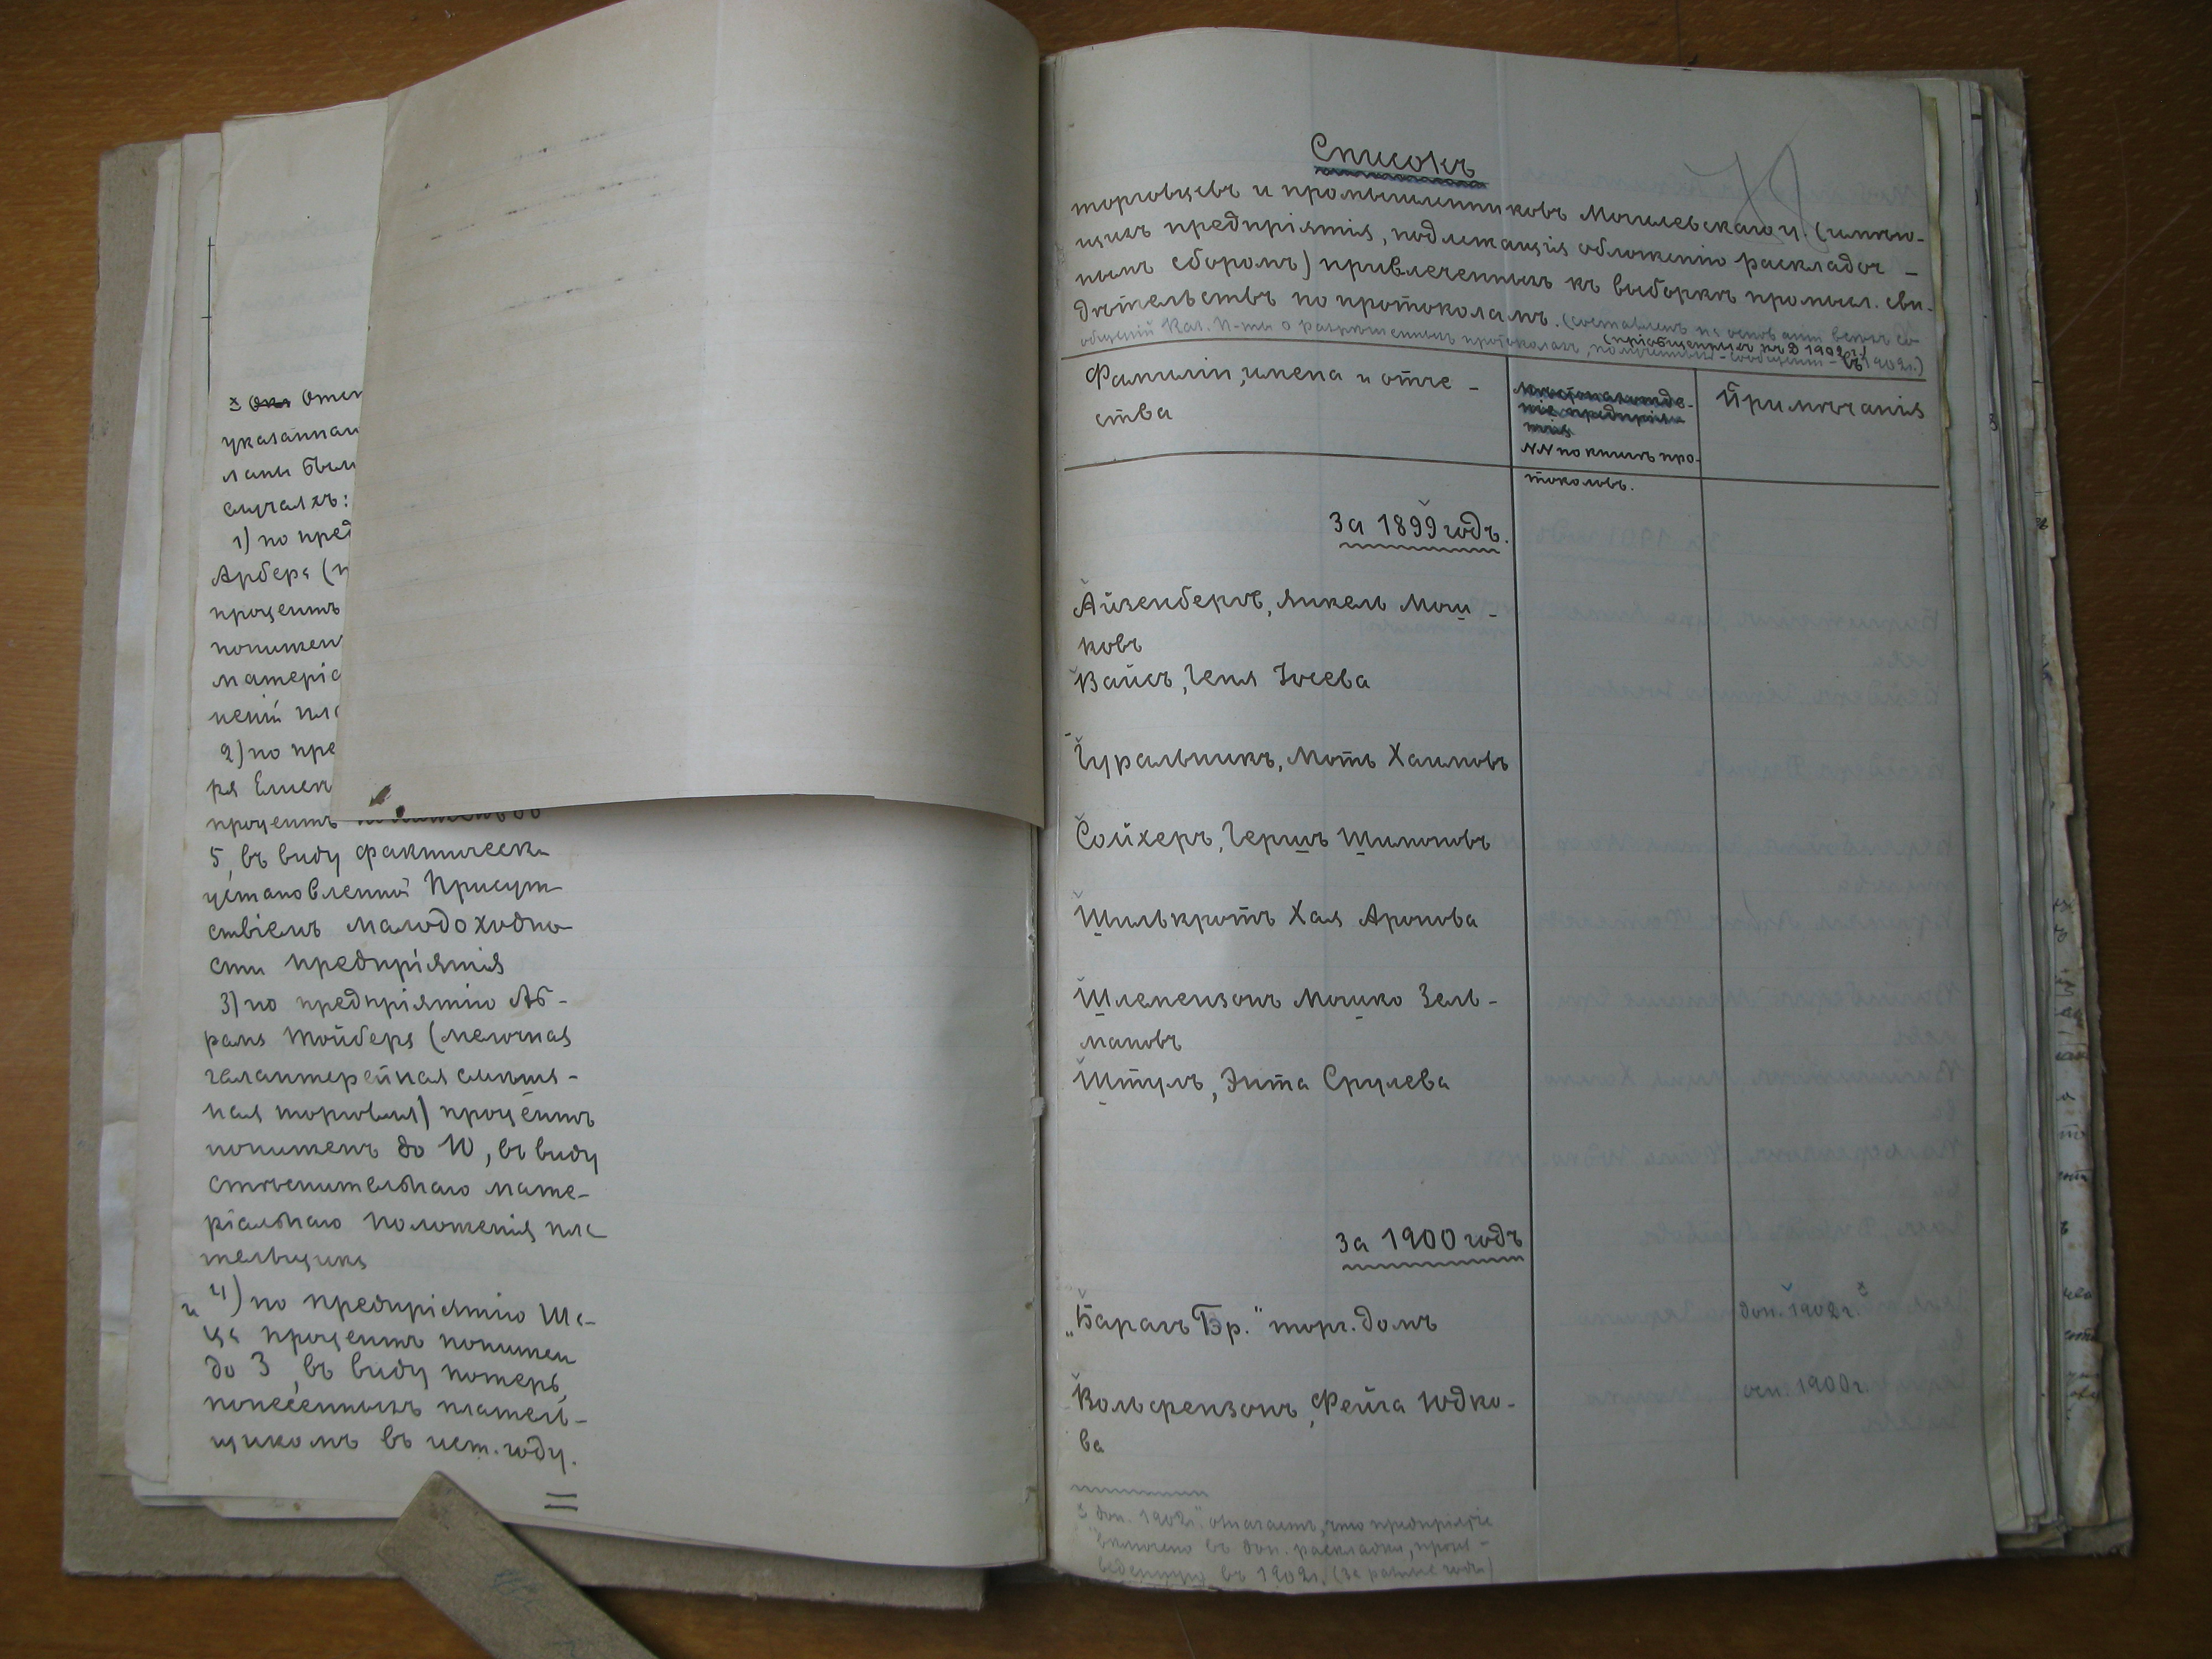 указанная
ланы был
случаяхъ:
1) по пред
Арбера (
процентъ
понижен
матеріа
неній пла
2) по пре
ря Елиен
процентъ пониженъ до
5, въ виду фактически
установленной Присут
ствіемъ малодоходно
сти предпріятія
3) по предпріятію Аб-
рама Тойбера (мелочная
галантерейная смѣшан-
ная торговля) процентъ
пониженъ до 10, въ виду
стѣснительнаго мате-
ріальнаго положенія пла
тельщика
и 4) по предпріятію Ша-
ца процентъ понижен
до 3, въ виду потерь,
понесенныхъ платель-
щикомъ въ ист. году.
Списокъ
торговцевъ и промышленниковъ Могилевскаго у. (имѣю-
щихъ предпріятія, подлежащія обложенію раскладоч-
нымъ сборомъ) привлеченныхъ къ выборкѣ промысл. сви-
дѣтельствъ по протоколамъ. (составленъ на основаніи всѣхъ со-
общеній Каз. П-ты о разрѣшенныхъ протоколахъ, полученныхъ въ 1902 г.)
(пріобщенныхъ къ Д 1902 г.)
Фамиліи, имена и отче-
ства
Мѣстонахожде-
ніе предпрія-
тія
NN по книгѣ про-
токоловъ.
Примѣчанія
За 1899 годъ.
Айзенбергъ, Янкель Мош-
ковъ
Вайсъ, Геня Іосева
Гуральникъ, Моть Хаимовъ
Сойхеръ, Гершъ Шимоновъ
Шилькротъ Хая Аронова
Шлемензонъ Мошко Зель-
мановъ
Штулъ, Энта Срулева
За 1900 годъ
„Барагъ Бр." торг. домъ
доп. 1902 г.
Вольфензонъ, Фейга Юдко-
ва
осн. 1900 г.
доп. 1902 г." означаетъ, что предпріятіе
включено въ доп. раскладки, произ-
веденную въ 1902 г. (за разные годы)